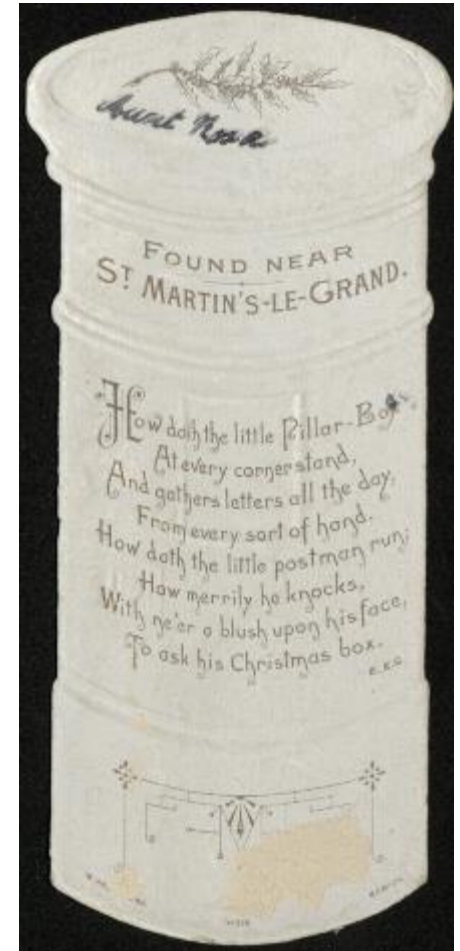 Aunt Rosa
FOUND NEAR
ST MARTIN'S-LE-GRAND.
How doth the little Pillar-Box,
At every corner stand,
And gathers letters all the day,
From every sort of hand.
How doth the little postman run;
How merrily he knocks,
With ne'er a blush upon his face,
To ask his Christmas box.